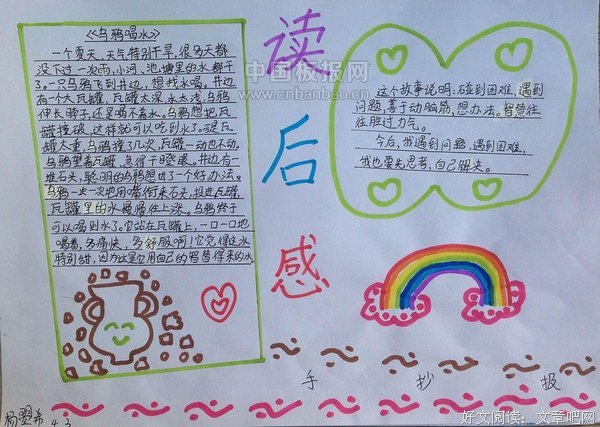 《乌鸦喝水》
一个夏天,天气特别干旱,很多天都
没下过一次雨,小河、池塘里的水都干
了。一只乌鸦飞到井边,想找水喝。井边
有一个大瓦罐,瓦罐太深,水太浅,乌鸦
伸长脖子,还是喝不着水。乌鸦想把瓦
罐撞破,这样就可以吃到水了。可是瓦
罐太重,乌鸦撞了几次,瓦罐一动也不动。
乌鸦望着瓦罐,急得干瞪眼。井边有一
堆石头,聪明的乌鸦想出了一个好办法。
乌鸦一次一次地用嘴衔来石头,投进瓦罐
瓦罐里的水慢慢往上涨。乌鸦终于
可以喝到水了。它站在瓦罐上,一口一口地
喝着,多痛快,多舒服啊!它觉得这水
特别甜,因为这是它用自己的智慧得来的水
读
后
感
这个故事说明:碰到困难,遇到
问题,善于动脑筋,想办法。智慧往
往胜过力气。
今后,我遇到问题,遇到困难,
我也要先思考,自己解决。
中国板报网
www.cnbanbao.cn
手 抄 报
4.3
好文阅读:文章吧网